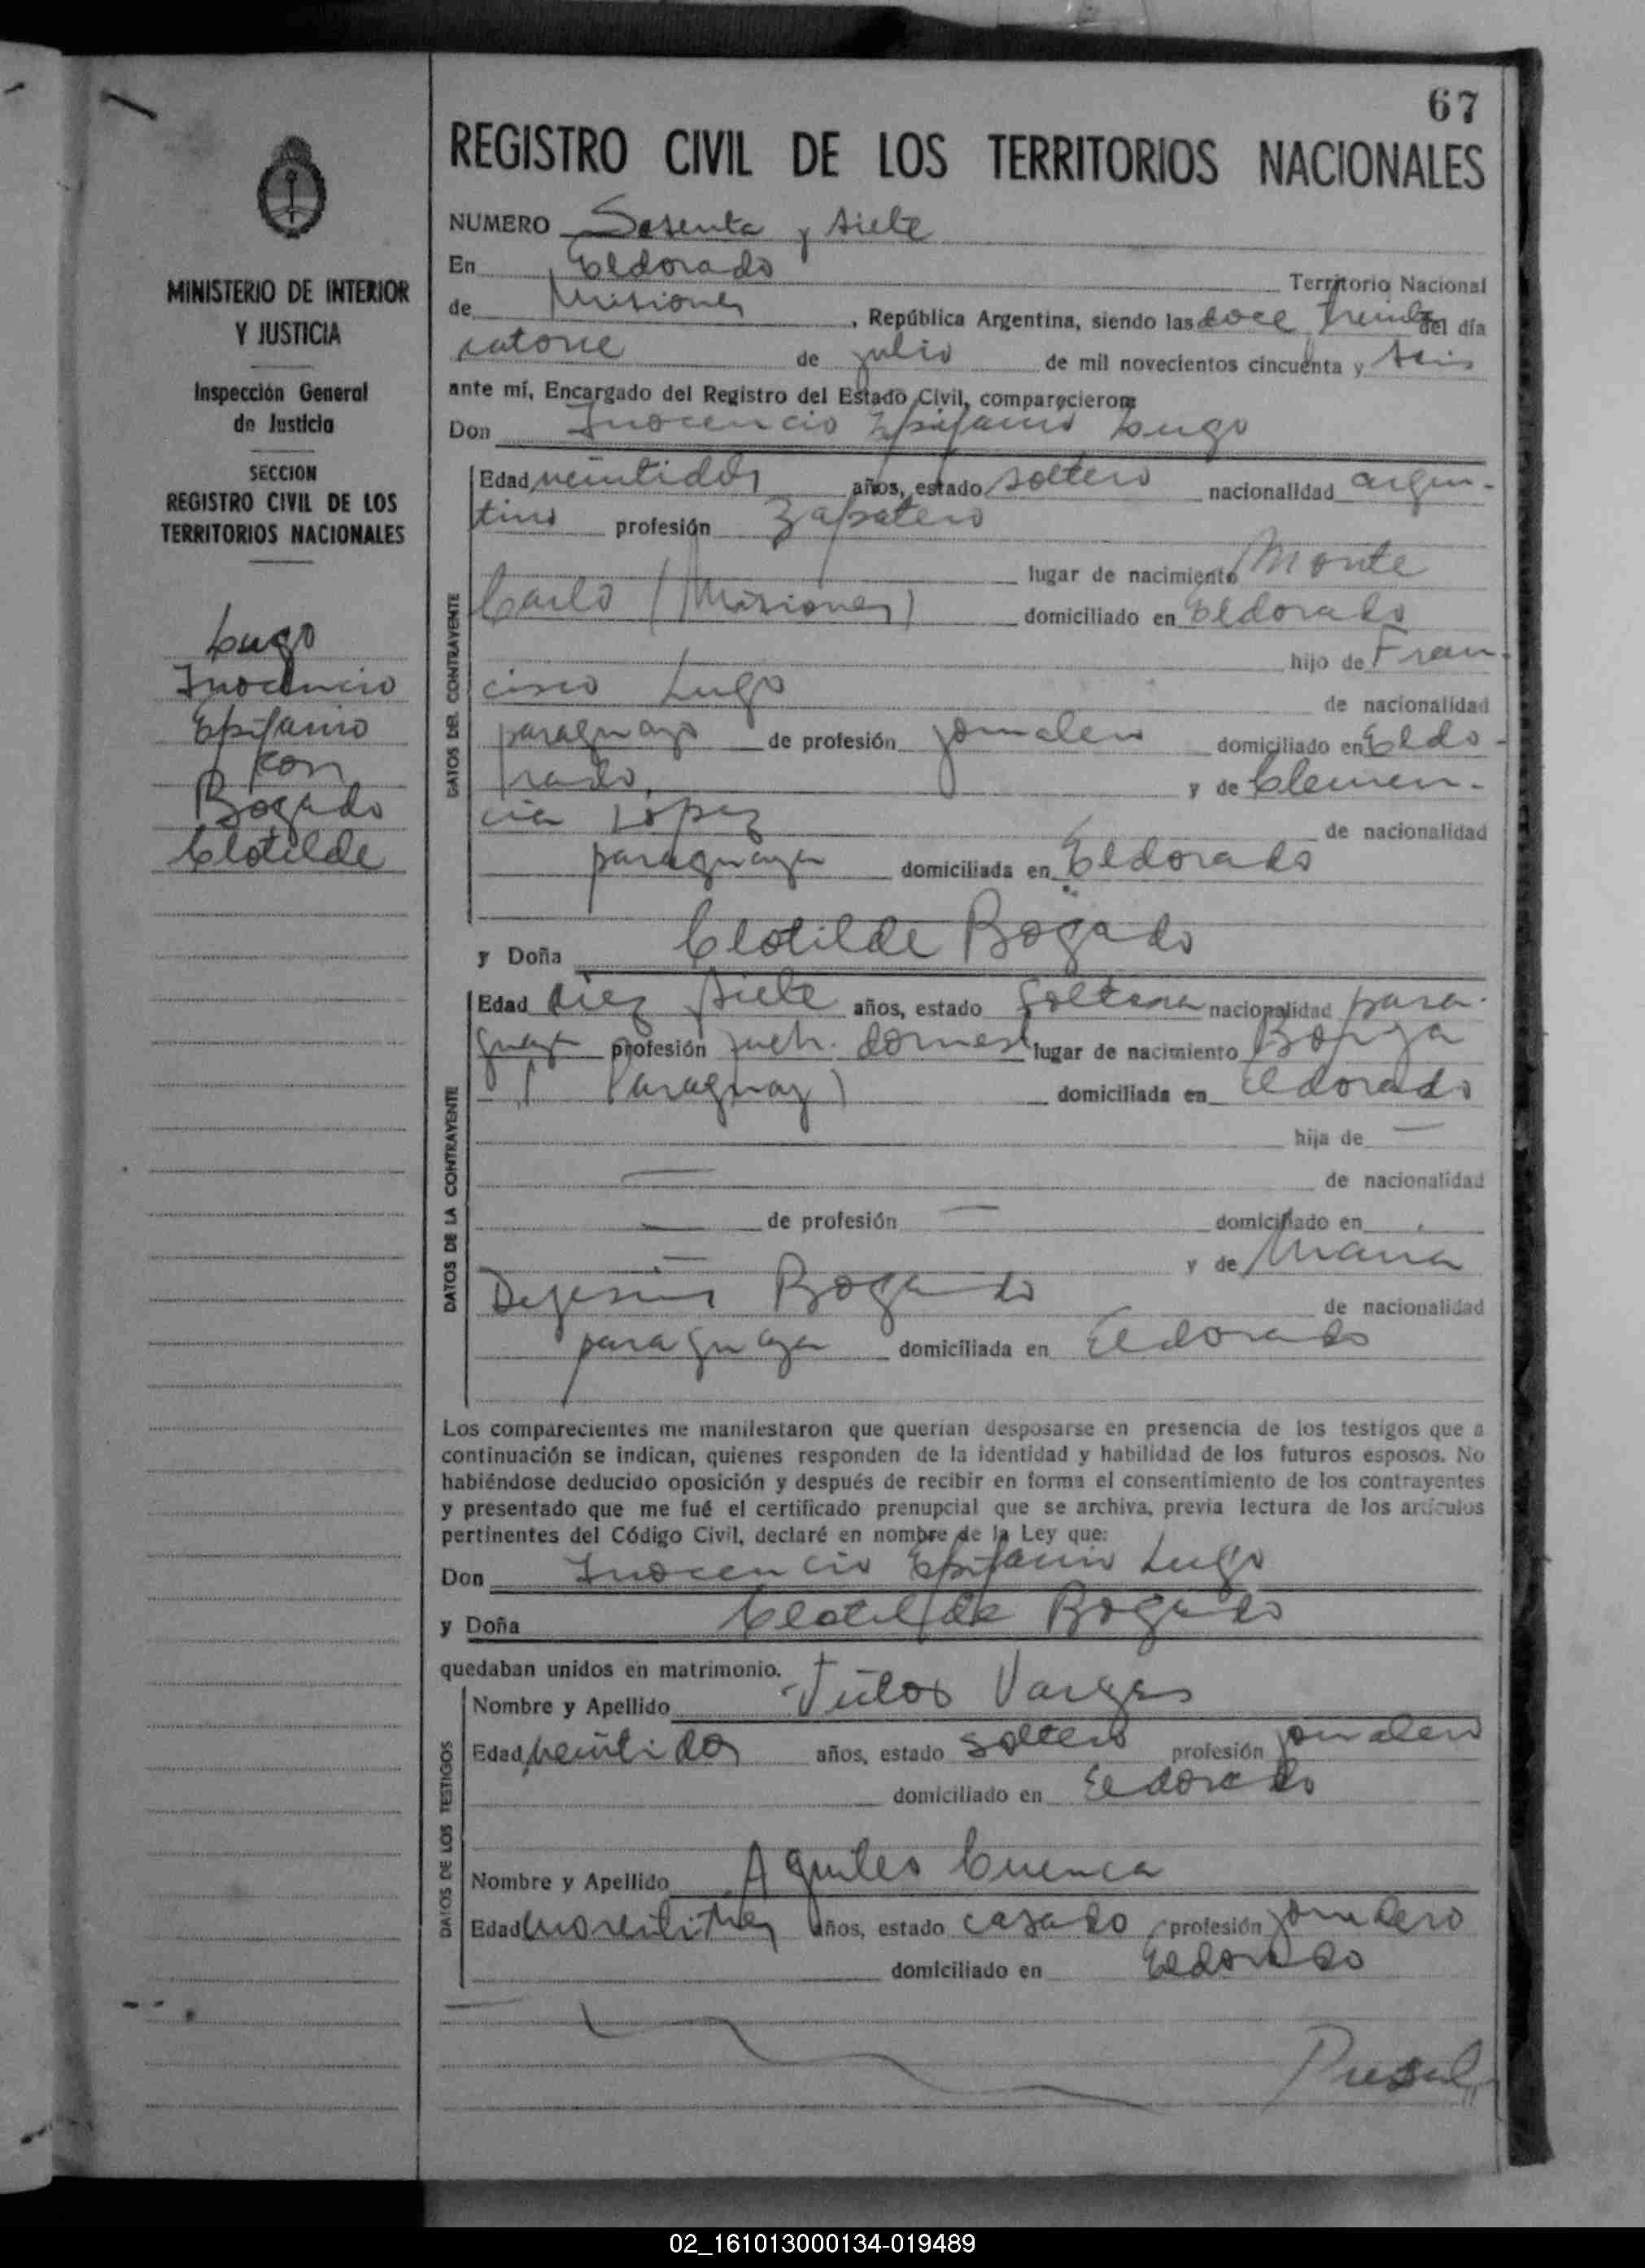 67
REGISTRO CIVIL DE LOS TERRITORIOS NACIONALES
MINISTERIO DE INTERIOR
Y JUSTICIA
Inspección General
de Justicia
SECCION
REGISTRO CIVIL DE LOS
TERRITORIOS NACIONALES
Lugo
Inocencio
Epifanio
con
Bogado
Clotilde
NUMERO Sesenta y siete
En Eldorado Territorio Nacional
de Misiones, República Argentina, siendo las doce treinta del día
catorce de julio de mil novecientos cincuenta y seis
ante mí, Encargado del Registro del Estado Civil, comparecieron:
Don Inocencio Epifanio Lugo
DATOS DEL CONTRAYENTE
Edad veintidós años, estado soltero nacionalidad argen-
tino profesión Zapatero
lugar de nacimiento Monte
Carlo (Misiones) domiciliado en Eldorado
hijo de Fran-
cisco Lugo de nacionalidad
paraguayo de profesión jornalero domiciliado en Eldo-
rado, y de Clemen-
cia López de nacionalidad
paraguaya domiciliada en Eldorado
y Doña Clotilde Bogado
DATOS DE LA CONTRAYENTE
Edad diez siete años, estado soltera nacionalidad para-
guaya profesión domest lugar de nacimiento
(Paraguay) domiciliada en Eldorado
hija de —
— de nacionalidad
— de profesión — domiciliado en
— y de María
Dejesús Bogado de nacionalidad
paraguaya domiciliada en Eldorado
Los comparecientes me manifestaron que querían desposarse en presencia de los testigos que a
continuación se indican, quienes responden de la identidad y habilidad de los futuros esposos. No
habiéndose deducido oposición y después de recibir en forma el consentimiento de los contrayentes
y presentado que me fué el certificado prenupcial que se archiva, previa lectura de los artículos
pertinentes del Código Civil, declaré en nombre de la Ley que:
Don Inocencio Epifanio Lugo
y Doña Clotilde Bogado
quedaban unidos en matrimonio.
DATOS DE LOS TESTIGOS
Nombre y Apellido Vargas
Edad veintidos años, estado soltero profesión jornalero
domiciliado en Eldorado
Nombre y Apellido Aquiles Cuenca
Edad años, estado casado profesión jornalero
domiciliado en Eldorado
02_161013000134-019489